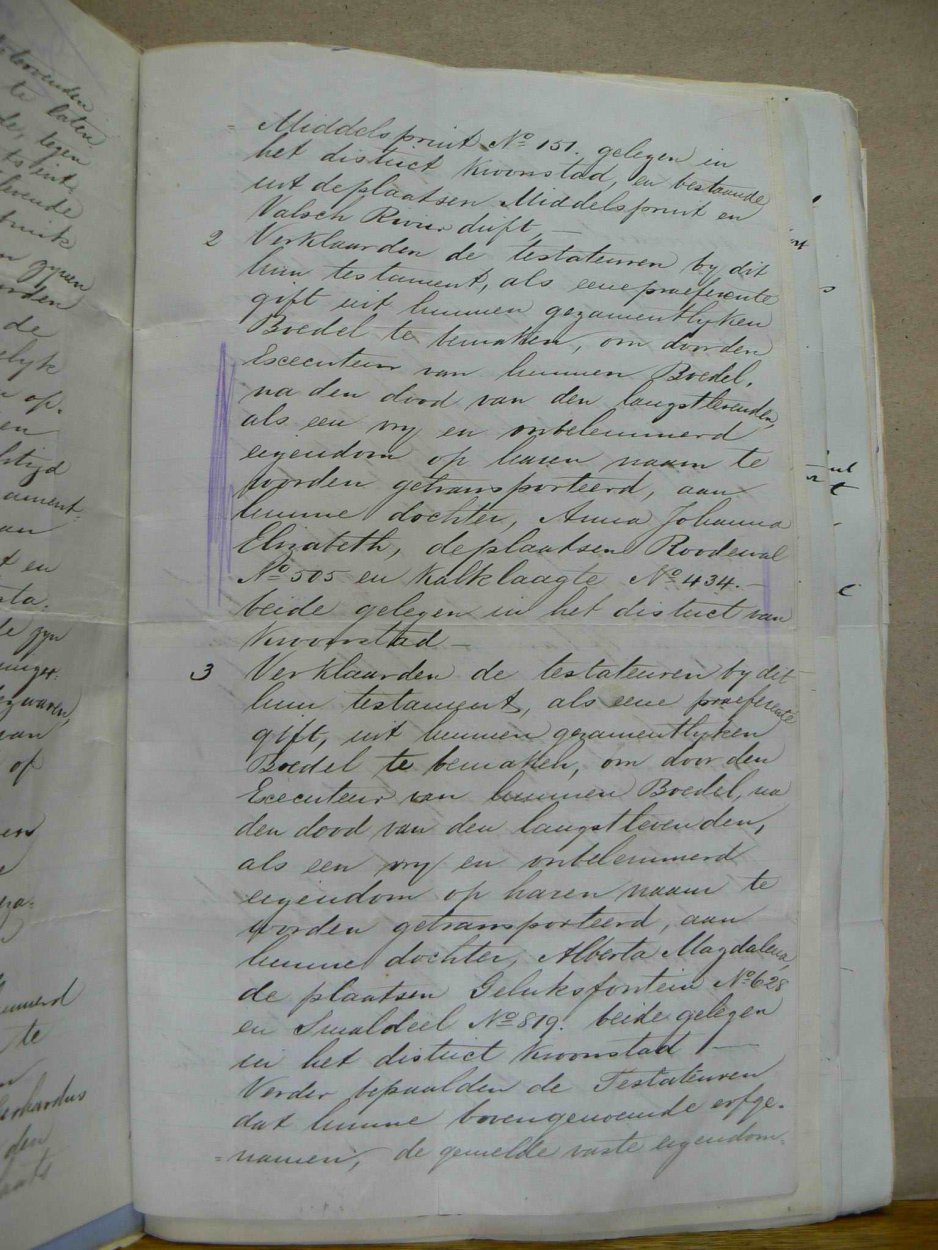 bovenden
te laten
de, tegen
levende
truik
n gyseen
orden
de
elyk
op.
en
htijd
ament.
an
t en
sta.
le zyn
van
of
ers
e
nuerd
te
n
Gerhardus
den
aats
Middelspruit No 151. gelegen in
het district Kroonstad, en bestaande
uit de plaatsen Middelspruit en
Valsch Rivier drift —
2 Verklaarden de testateuren by dit
hun testament, als eene praeferente
gift uit hunnen gezamentlyken
Boedel te bemaken, om door den
Executeur van hunnen Boedel,
na den dood van den langstlevenden,
als een vry en onbelemmerd
eigendom op haren naam te
worden getransporteerd, aan
hunne dochter, Anna Johanna
Elizabeth, de plaatsen Roodewal
No 505 en Kalklaagte No 434. —
beide gelegen in het district van
Kroonstad —
3 Verklaarden de testateuren by dit
hun testament, als eene praeferente
gift, uit hunnen gezamentlyken
Boedel te bemaken, om door den
Executeur van hunnen Boedel, na
den dood van den langstlevenden,
als een vry en onbelemmerd
eigendom op haren naam te
worden getransporteerd, aan
hunne dochter, Alberta Magdalena,
de plaatsen Geluksfontein No 628
en Smaldeel No 819. beide gelegen
in het district Kroonstad —
Verder bepaalden de Testateuren
dat hunne bovengenoemde erfge-
=namen, de gemelde vaste eigendom-